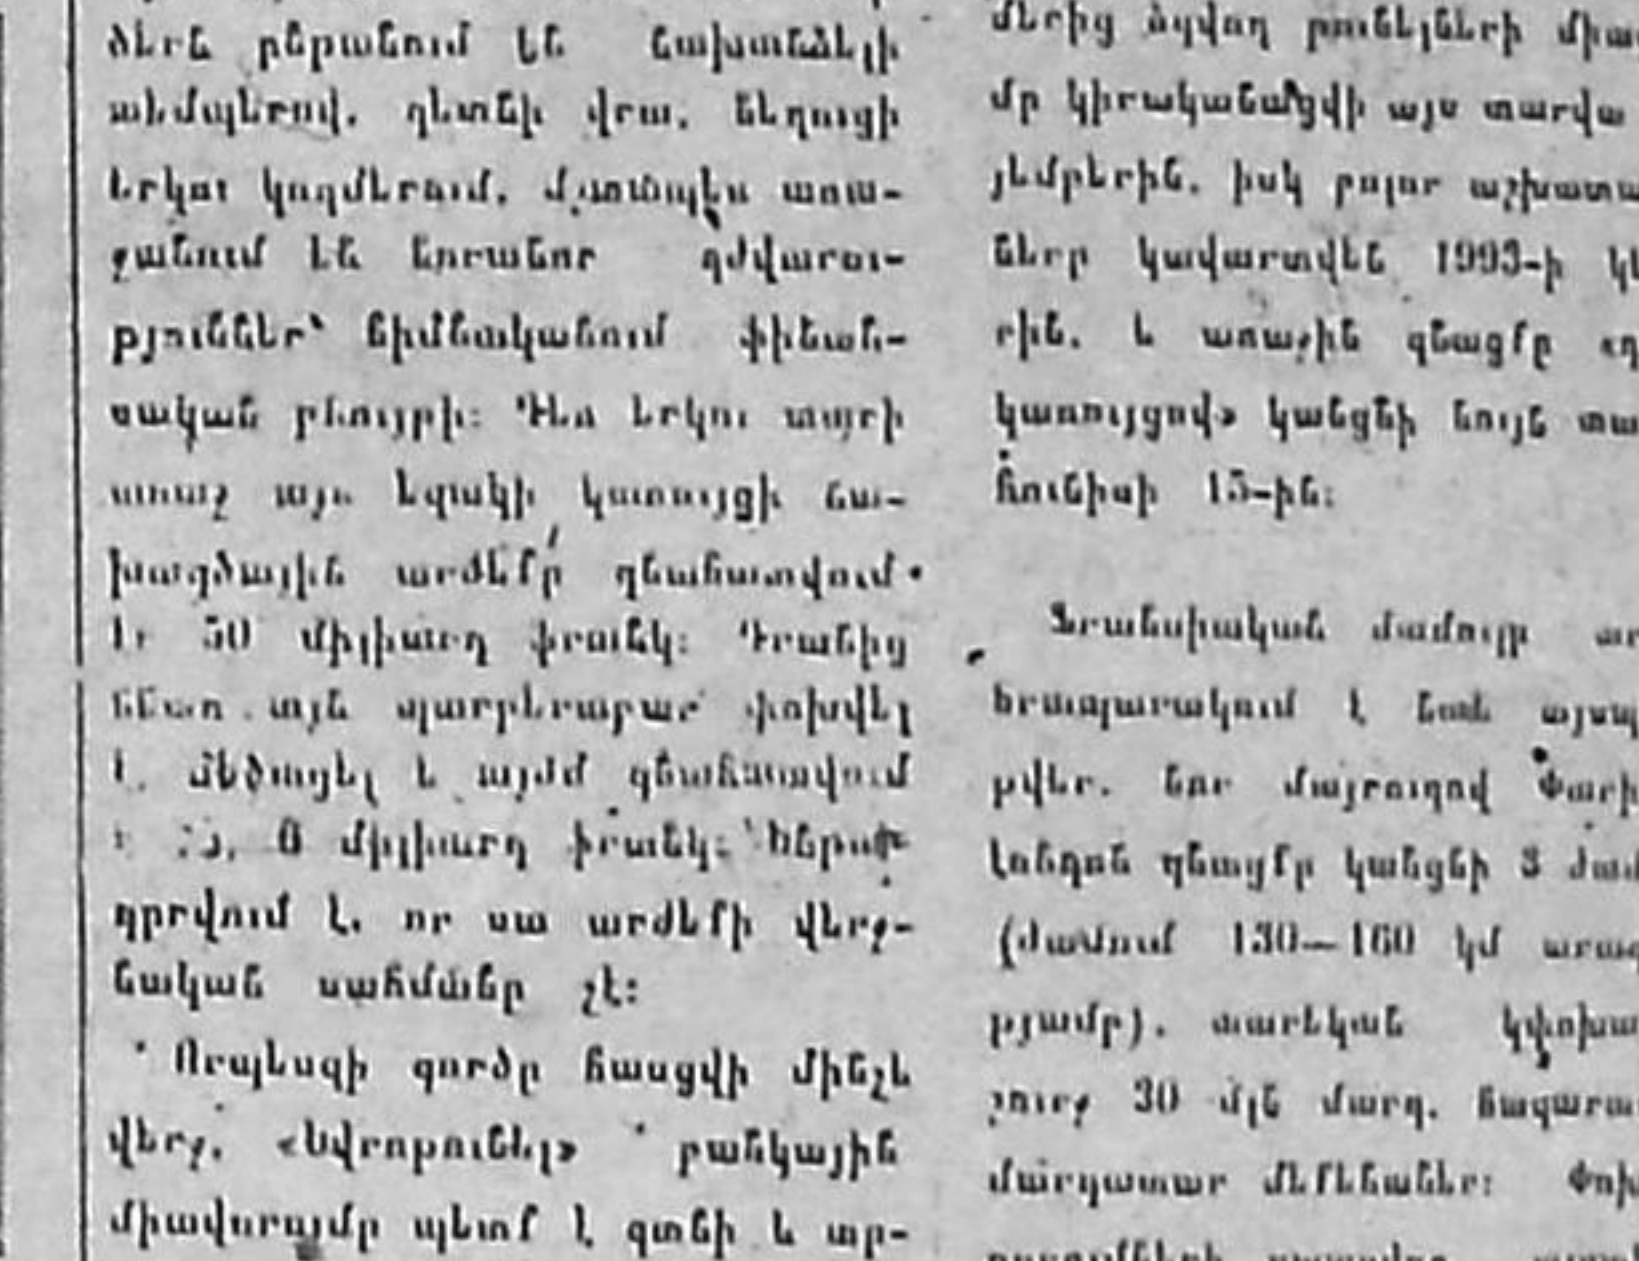 ձերն ընթանում են նախանձելի
տեմպերով, գետնի վրա, նեղուցի
երկու կողմերում, մյուսպես առա-
ջանում են նորանոր դժվարու-
թյուններ՝ հիմնականում ֆինան-
սական բնույթի։ Դեռ երկու տարի
առաջ այս եզակի կառույցի նա-
խագծային արժեքը գնահատվում
էր 50 միլիարդ ֆրանկ։ Դրանից
հետո այն պարբերաբար փոխվել
է, մեծացել և այժմ գնահատվում
6 միլիարդ ֆրանկ։ Ենթադ-
դրվում է, որ սա արժեքի վերջ-
նական սահմանը չէ։
Որպեսզի գործը հասցվի մինչև
վերջ, «Եվրոթունել» բանկային
միավորումը պետք է գտնի և տր-
մերից ձգվող թունելների միա
մբ կիրականացվի այս տարվա
յեմբերին, իսկ բոլոր աշխատա
ները կավարտվեն 1993-ի կե
րին, և առաջին գնացքը «ղ
կառույցով» կանցնի նույն տա
հունիսի 15-ին։
Ֆրանսիական մամուլը ար
հրապարակում է նաև այսպ
թվեր. նոր մայրուղով Փարի
Լոնդոն գնացքը կանցնի 3 ժամ
(ժամում 130—160 կմ արագ
թյամբ), տարեկան կփոխա
շուրջ 30 մլն մարդ, հազարա
մարդատար մեքենաներ։ Փոխ